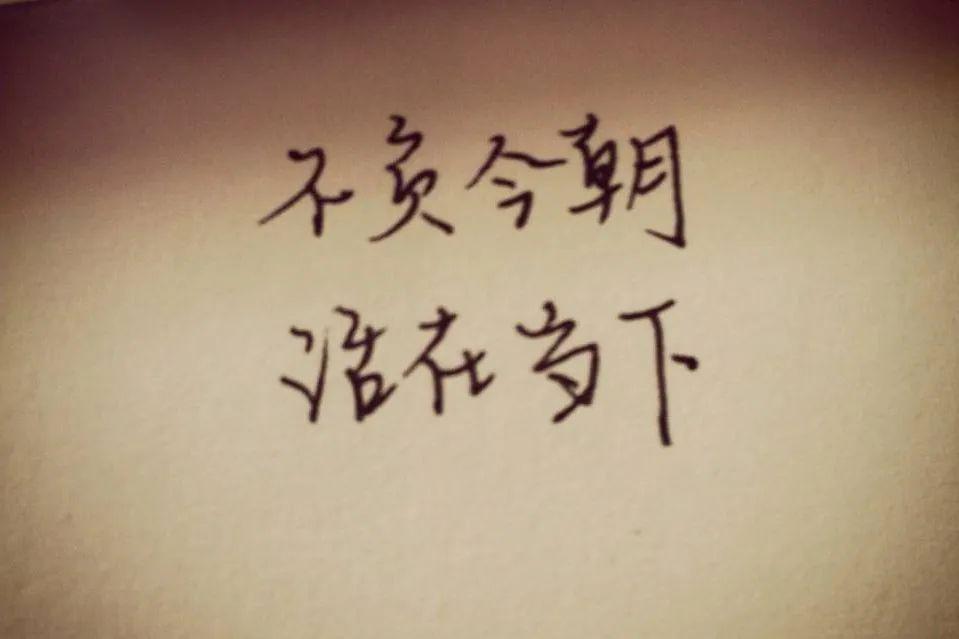 不负今朝
活在当下